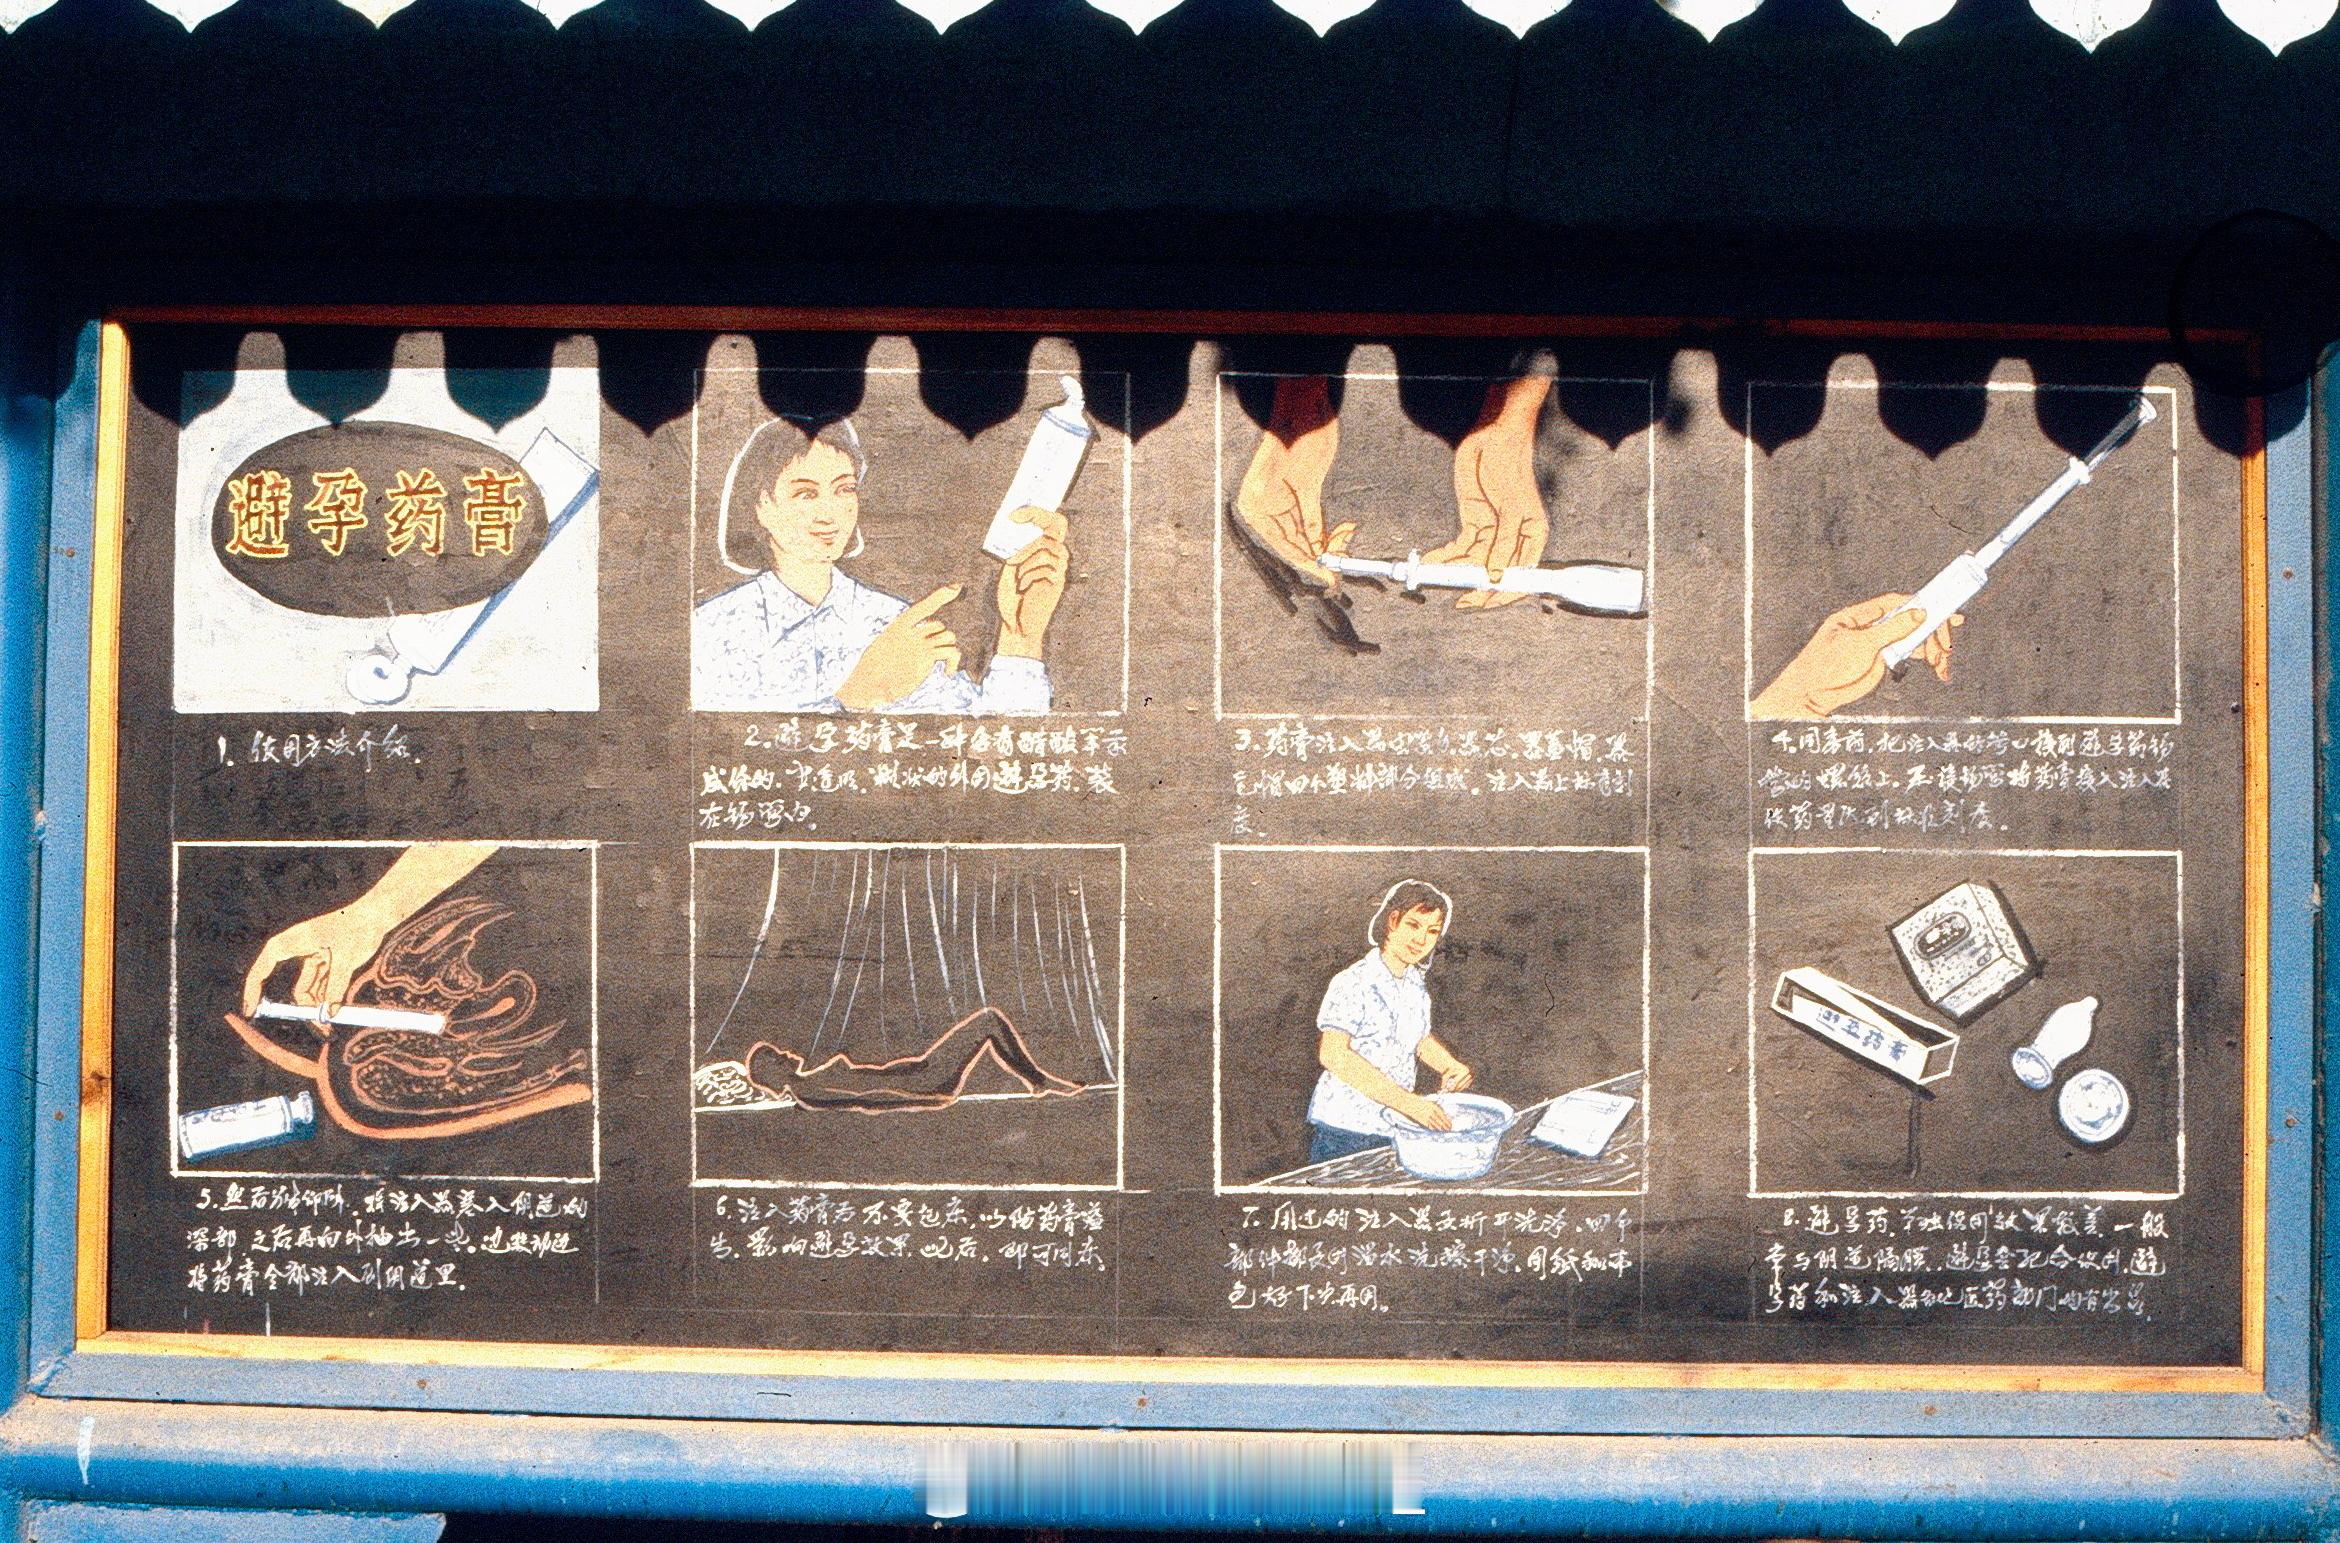 避孕药膏
1. 使用方法介绍.
2. 避孕药膏是一种含有醋酸苯汞
成份的、半透明、糊状的外用避孕药、装
在锡管内。
3. 药膏注入器由
四个塑料部分组成。注入器上标有刻
度。
4. 用膏前，把注入器的管口接到避孕药锡
管的螺丝上。再
使药量达到标准刻度。
5. 然后 仰卧，将注入器塞入阴道的
深部 之后再向外抽出一些。边
将药膏全部注入到阴道里。
6. 注入药膏后不要起床，以防药膏溢
出，影响避孕效果。 即可同床。
7. 用过的注入器要拆开洗净，四个
部件都要用温水洗擦干净，用纸和布
包好下次再用。
避孕药膏
8. 避孕药，单独使用效果较差，一般
常与阴道隔膜、避孕套配合使用。避
孕药和注入器各地医药部门均有出售。